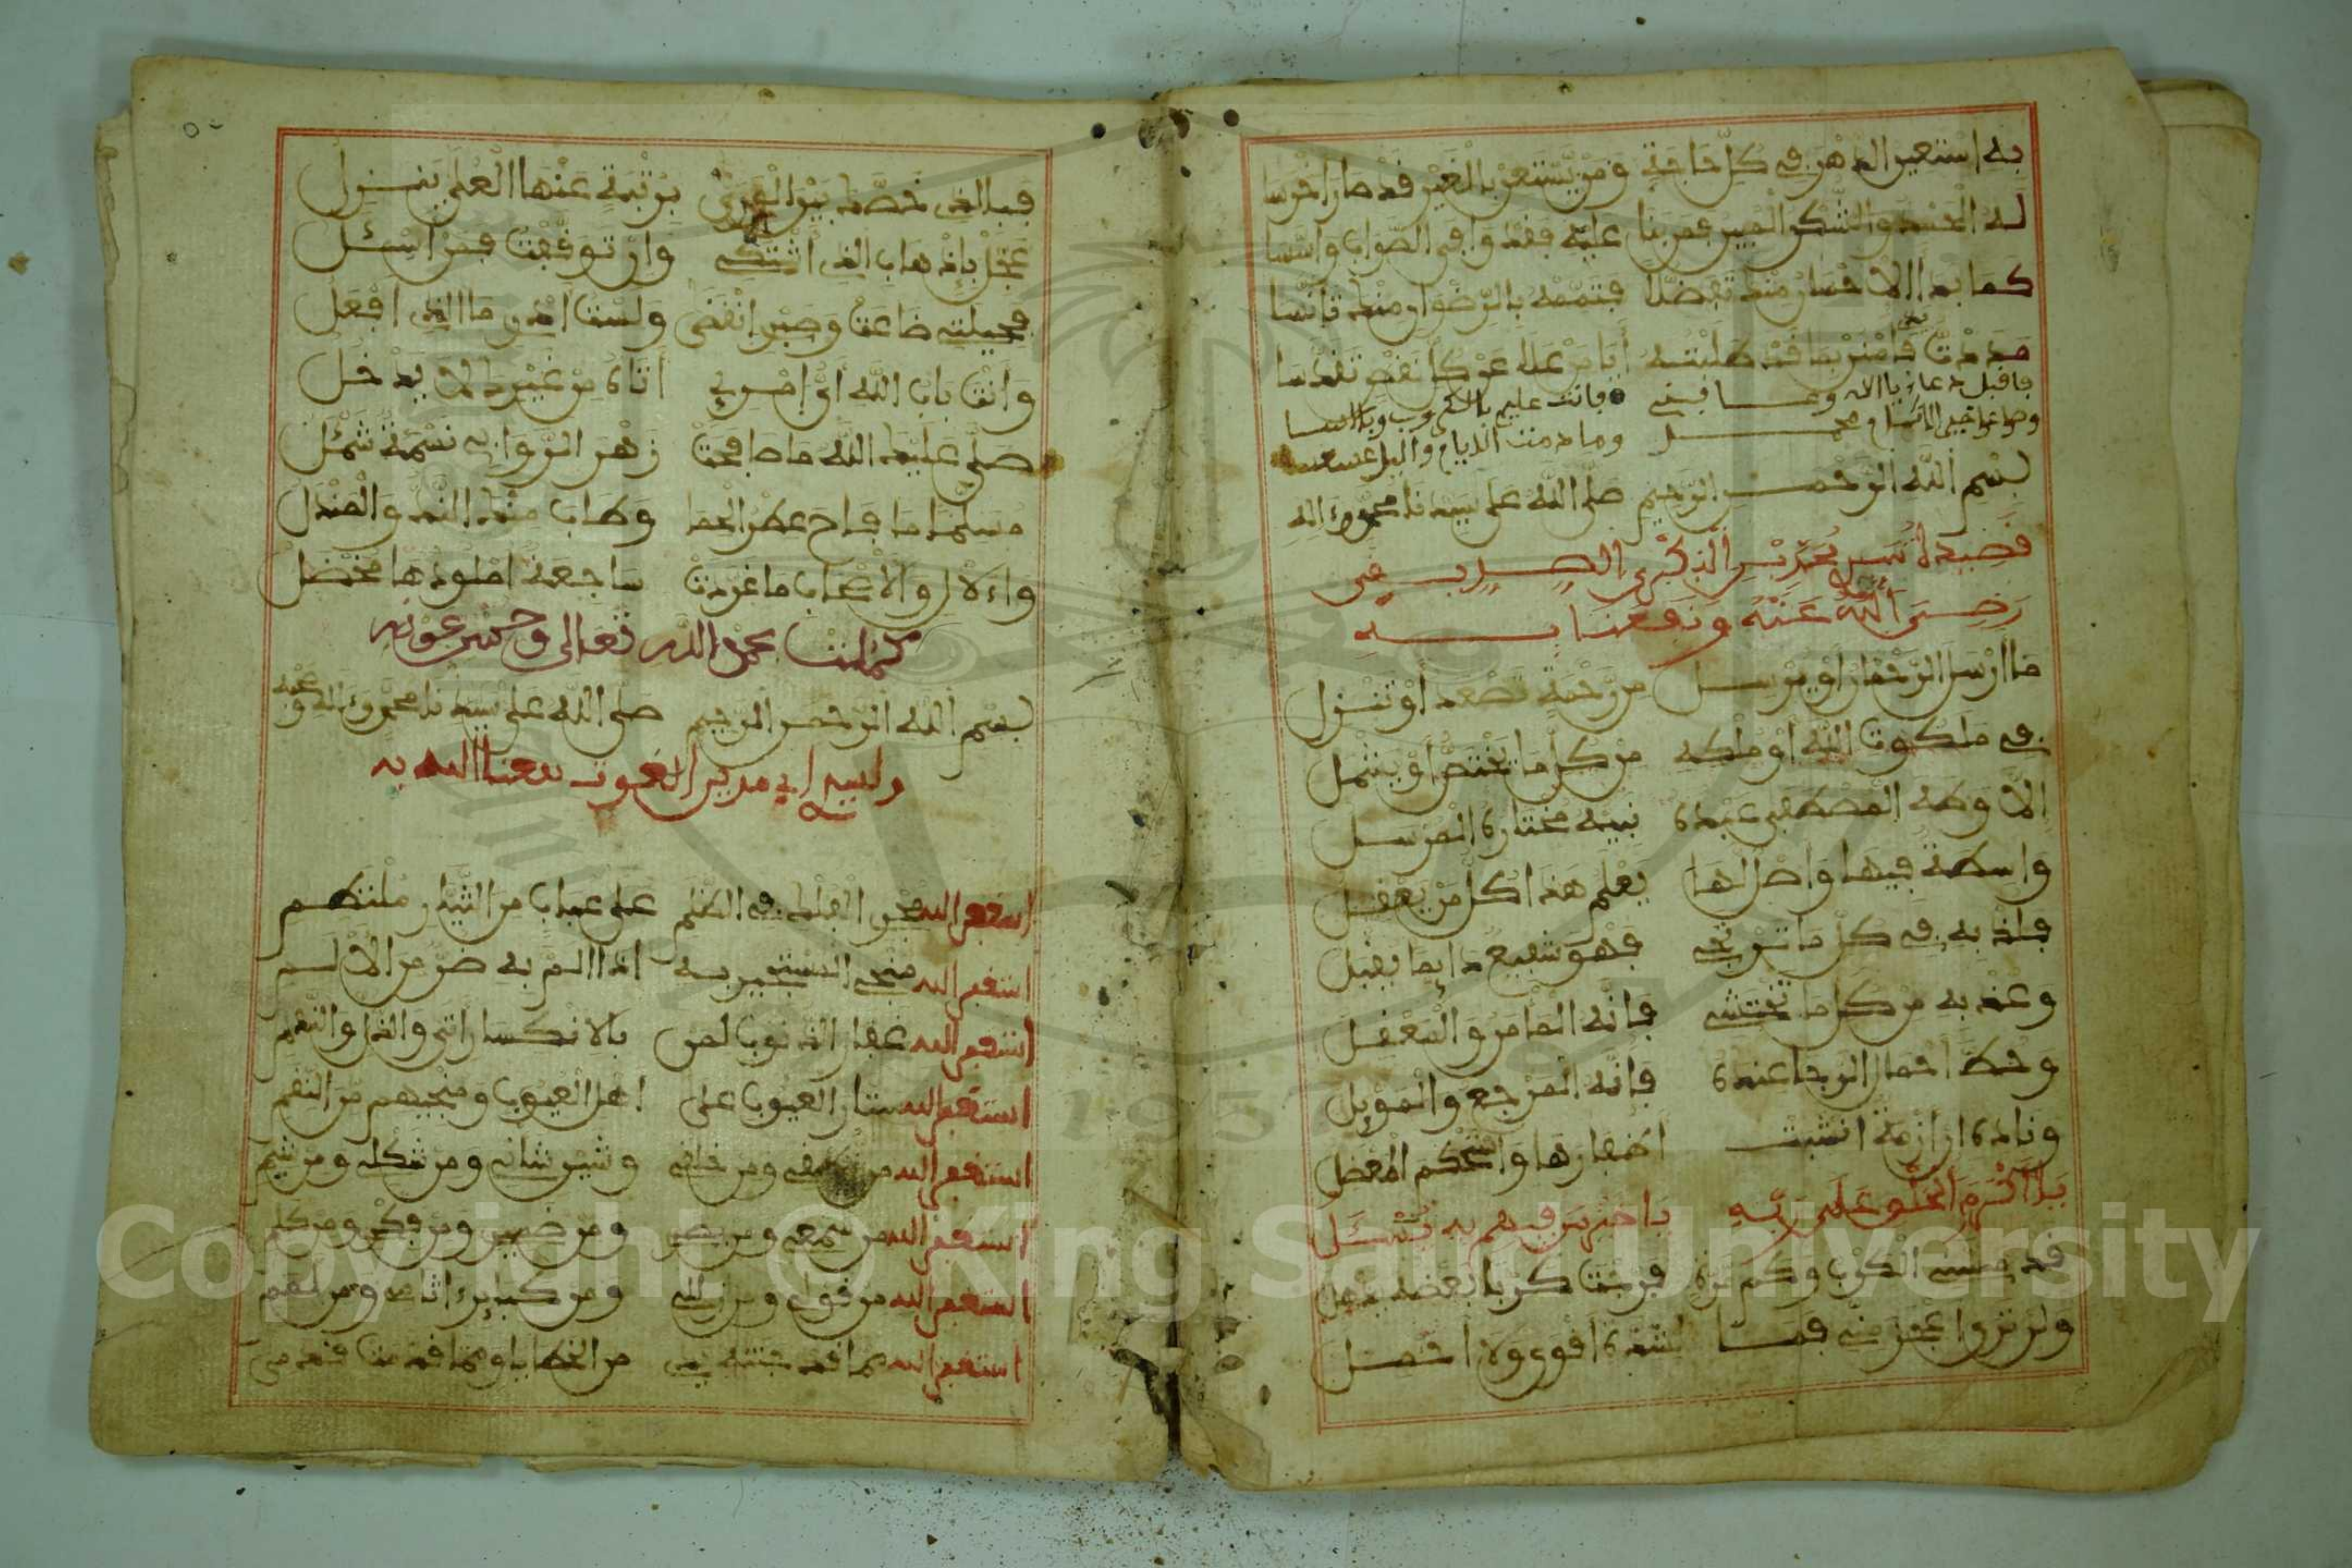 به استعين الدهر في كل حاجة ومن يستعن بالغير قد صار اخرسا
له الحمد والشكر
كما بدا الاحسان منه تفضلا فتممه بالرضوان منه
بسم الله الرحمن الرحيم صلى الله على سيدنا محمد وءاله
قصيدة محمد البكري الصديقي
رضي الله عنه ونفعنا به
ما ارسل الرحمان او يرسل من رحمة تصعد أو تنزل
في ملكوت الله او ملكه من كل ما يختص أو يشمل
الا وطه المصطفى عبده نبيه مختاره المرسل
واسطة فيها واصل لها يعلم هذا كل من يعقل
فلذ به في كل ما ترتجي فهو شفيع دايما يقبل
وعذ به من كل ما تختشي فانه المامن والمعقل
وحط احمال الرجا عنده فانه المرجع والمويل
وناده ان ازمة انشبت اظفارها واستحكم المعضل
يا اكرم الخلق على ربه يا خير من فيهم به يسئل
قد مسني الكرب وكم مرة فرجت كربا بعضه يذهل
ولن ترى اعجز مني فما لشدة اقوى ولا احمل
فبالذي خصك بين الورى برتبة عنها العلى ينزل
عجل بإذهاب الذي اشتكي وان توقفت فمن اسئل
فحيلتي ضاعت وصبري انقضى ولست ادري ما الذي افعل
وانت باب الله اي امرئ اتاه من غيرك لا يدخل
صلى عليك الله ما صافحت زهر الروابي نسمة شمئل
مسلما ما فاح عطر الحما وطاب منه الند والمندل
وءالال والاصحاب ما غردت ساجعة املودها مخضل
كملت بحمد الله تعالى وحسن عونه
بسم الله الرحمن الرحيم صلى الله على سيدنا محمد وءاله وصحبه
ولسيدي ابي مدين الغوث نفعنا الله به
استغفر الله مجري الفلك في الظلم على عباب من التيار ملتطم
استغفر الله منجي المستجير به اذا الم به ضر من الالم
استغفر الله غفار الذنوب لمن بالانكسار اتى والذل والندم
استغفر الله ستار العيوب على اهل العيوب ومنجيهم من النقم
استغفر الله من ومن خلقي وشين شاني ومن شكلي ومن شيمي
استغفر الله من سمعي ومن بصري ومن ضميري ومن فكري ومن كلمي
استغفر الله من قولي ومن ومن كباير اثامي ومن لممي
استغفر الله مما قد جنته يدي من الخطايا ومما قد مشت قدمي
Copyright © King Saud University
1957